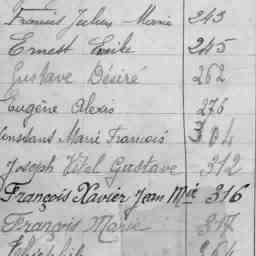 Francis Julien Marie 243
Ernest Emile 245
Gustave Désiré 262
Eugène Alexis 276
Constant Marie François 304
Joseph Vital Gustave 312
François Xavier Jean Mie 316
François Marie 317
364